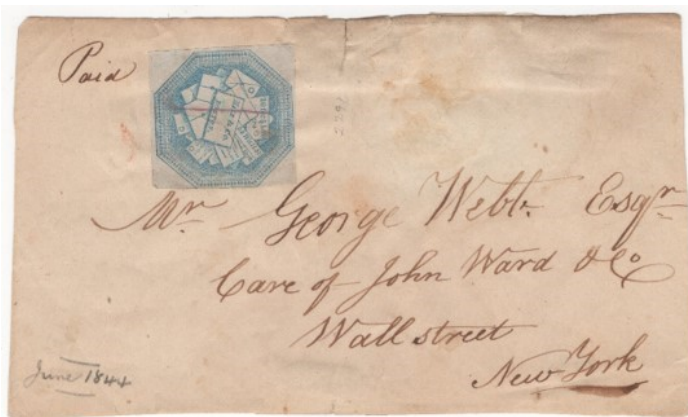 Paid
Mr George Webb Esqr
Care of John Ward & Co
Wall street
New York
June 1844